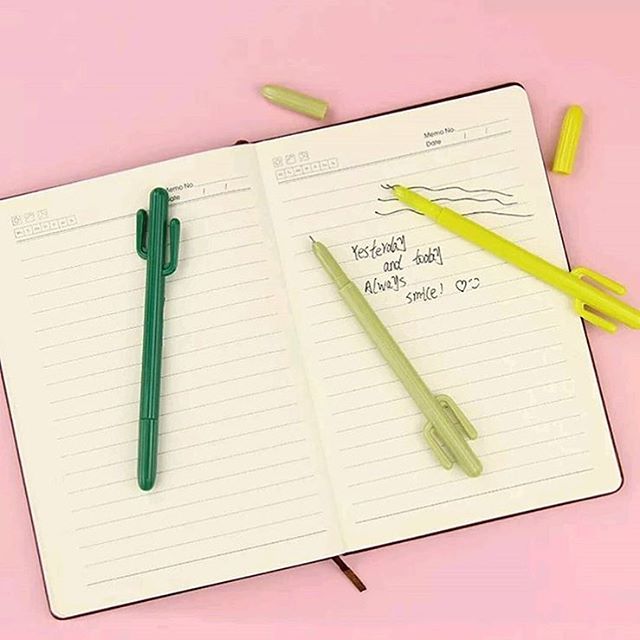 Memo No.
Date / /
Memo No.
Date / /
Yesterday
and today
Always
smile! ♡